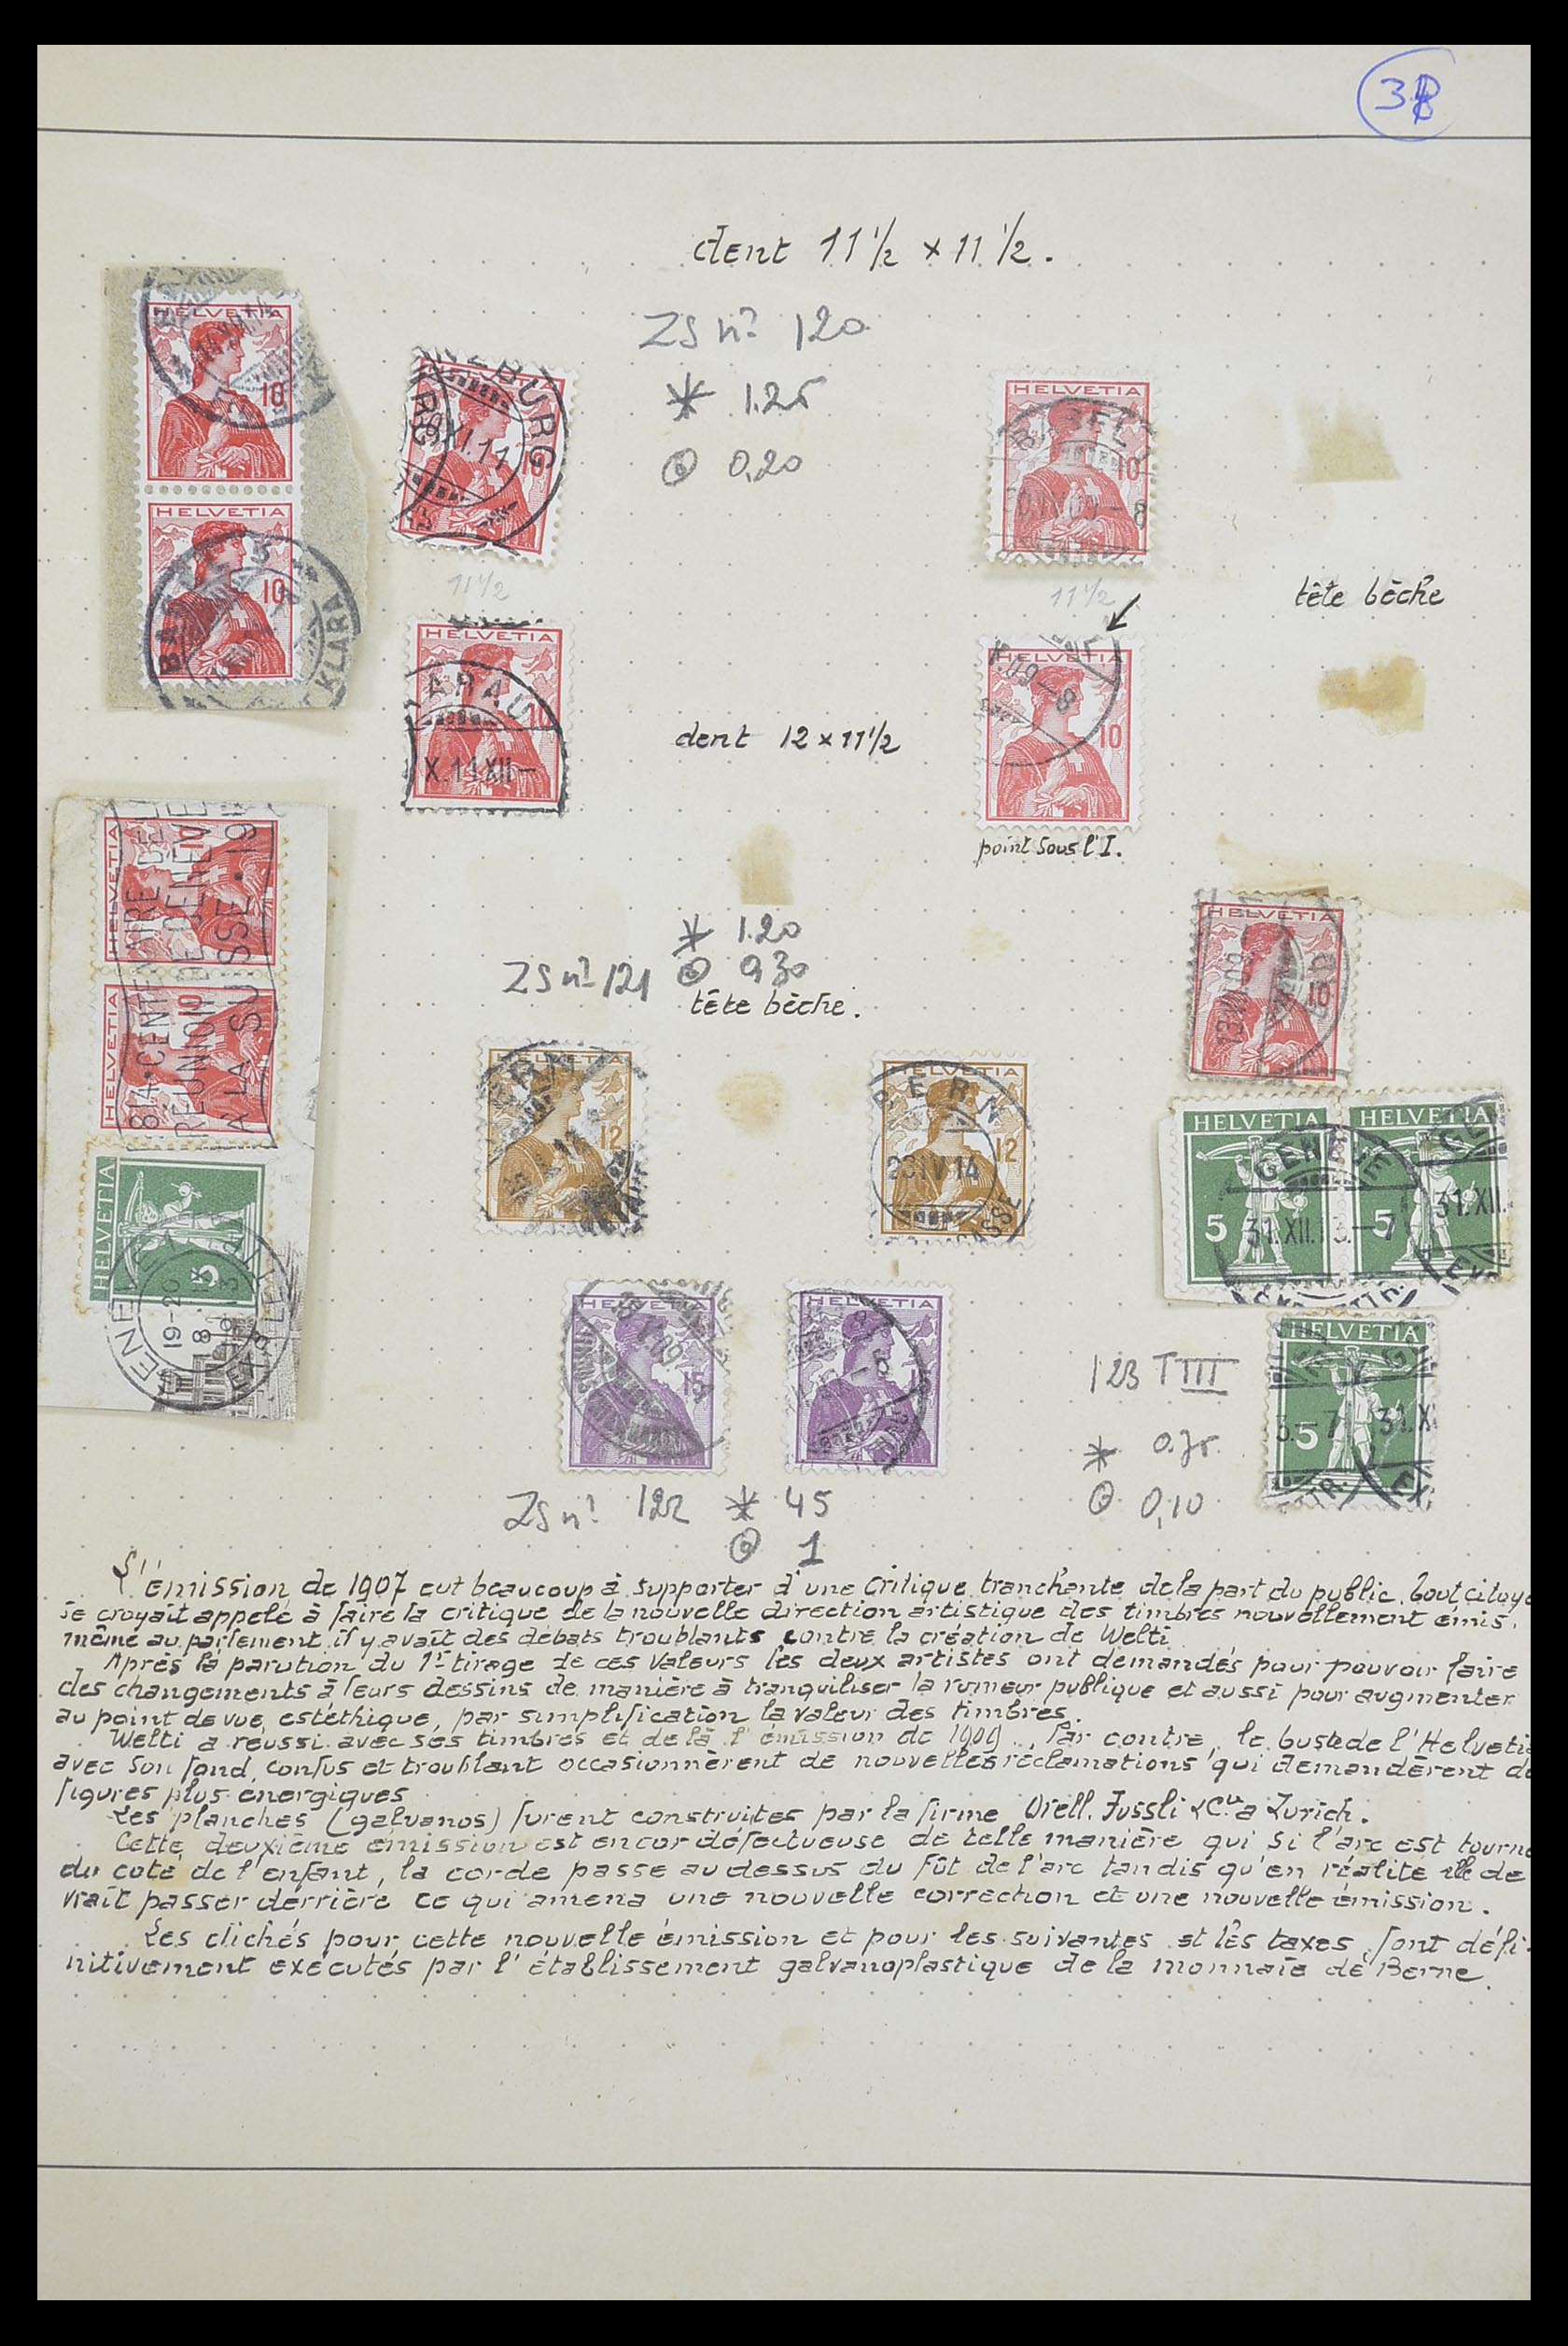 dent 11 1/2 x 11 1/2.
ZS nº 120
* 1.25
⊙ 0,20
HELVETIA
10
HELVETIA
10
BASEL
KLARA
BURG
XI.11
10
11 1/2
HELVETIA
10
BASEL
11 1/2
tête bêche
HELVETIA
10
AARAU
X.11 XII-
dent 12 x 11 1/2
HELVETIA
10
09-8
point sous l'I.
HELVETIA
10
HELVETIA
10
814 • CENTENAIRE DE L
REUNION DE GENEVE
A LA SUISSE • 19
HELVETIA
5
19-20
8
EX.LET
* 1.20
ZS nº 121 ⊙ 0,30
tête bêche.
HELVETIA
10
HELVETIA
12
BERN
HELVETIA
12
BERN
23 IV 14
HELVETIA
5
HELVETIA
5
GENEVE
31.XII.13.-7
31.XII.
HELVETIA
15
HELVETIA
123 TIII
* 0.75
⊙ 0,10
HELVETIA
5
ZS nº 122 * 45
⊙ 1
L'émission de 1907 eut beaucoup à supporter d'une critique tranchante de la part du public. Tout citoye
se croyait appelé à faire la critique de la nouvelle direction artistique des timbres nouvellement émis.
même au parlement il y avait des débats troublants contre la création de Welti
Après la parution du 1er tirage de ces valeurs les deux artistes ont demandés pour pouvoir faire
des changements à leurs dessins de manière à tranquiliser la rumeur publique et aussi pour augmenter
au point de vue esthéthique, par simplification la valeur des timbres.
Welti a réussi avec ses timbres et de là l'émission de 1909. Par contre, le buste de l'Helvetia
avec son fond confus et troublant occasionnèrent de nouvelles réclamations qui demandèrent de
figures plus énergiques
Les planches (galvanos) furent construites par la firme Orell. Fussli & Cie a Zurich.
Cette deuxième émission est encor défectueuse de telle manière qui si l'arc est tourné
du coté de l'enfant, la corde passe au dessus du fût de l'arc tandis qu'en réalité elle de
vrait passer derrière ce qui amena une nouvelle correction et une nouvelle émission.
Les clichés pour cette nouvelle émission et pour les suivantes et les taxes sont défi-
nitivement exécutés par l'établissement galvanoplastique de la monnaie de Berne.